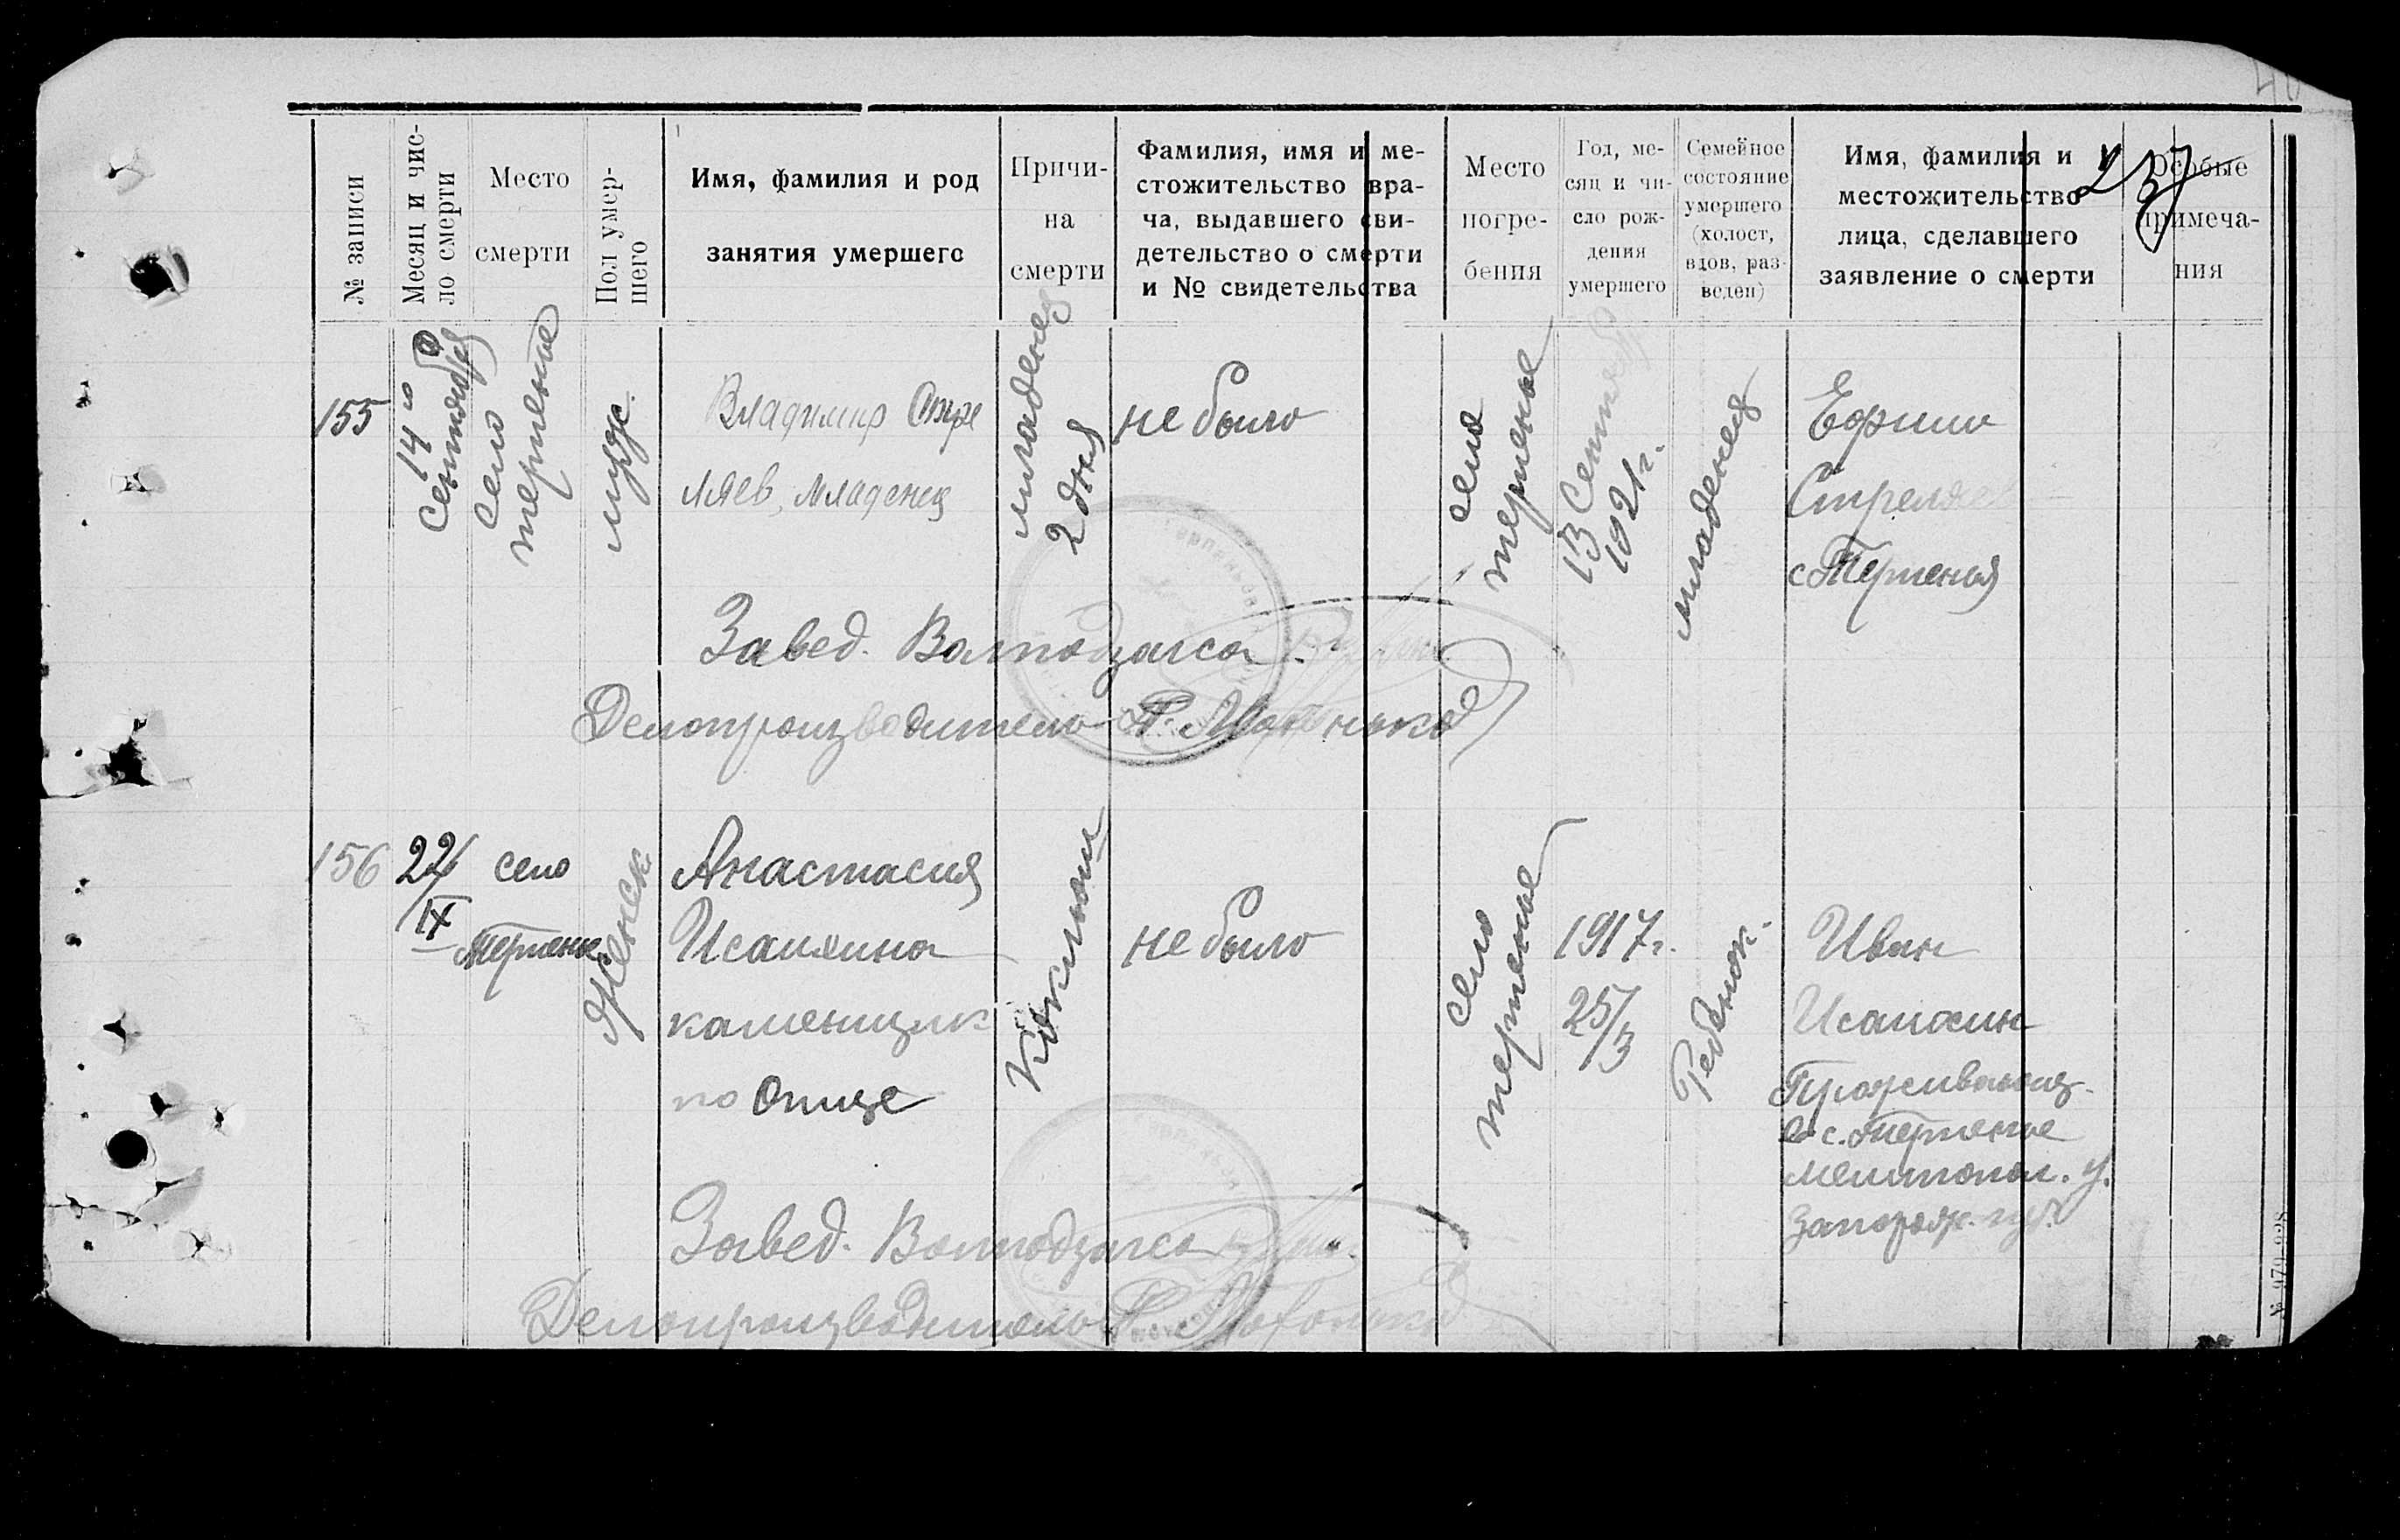 № записи
Месяц и чис-
ло смерти
Место
смерти
Пол умер-
шего
Имя, фамилия и род
занятия умершего
Причи-
на
смерти
Фамилия, имя и ме-
стожительство вра-
ча, выдавшего сви-
детельство о смерти
и № свидетельства
Место
погре-
бения
Год, ме-
сяц и чи-
сло рож-
дения
умершего
Семейное
состояние
умершего
(холост,
вдов, раз-
веден)
Имя, фамилия и
местожительство
лица, сделавшего
заявление о смерти
Особые
примеча-
ния
155
14
Сентября
Село
терпенье
муж.
Владимир Стре
ляев, младенец
младенец
2 дня
не было
село
терпенье
13 Сентяб
1921 г.
младенец
Ефим
Стреляев
с Терпенья
Завед. Волподзагса
Делопроизводитель
156
22/IX
село
Терпенье
женск.
Анастасия
Исаихина
каменщик
по Отце
Коклюш
не было
село
терпенье
1917 г.
25/3
Ребенок.
Иван
Исаихин
Проживающ.
в с. Терпенье
Мелитопол. у.
Запорож. губ.
Завед. Волподзагса
Делопроизводитель